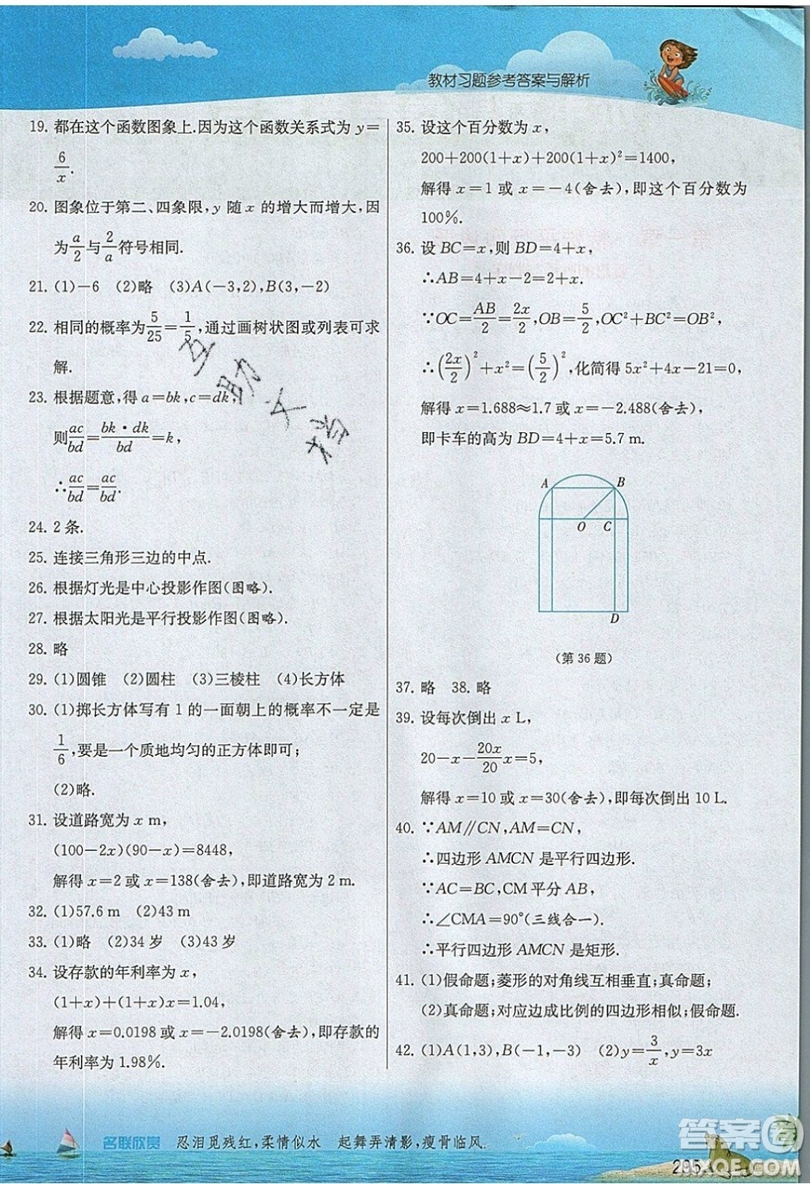 教材习题参考答案与解析
19. 都在这个函数图象上.因为这个函数关系式为 y=
6/x.
20. 图象位于第二、四象限,y 随 x 的增大而增大,因
为 a/2 与 2/a 符号相同.
21. (1)-6 (2)略 (3)A(-3,2),B(3,-2)
22. 相同的概率为 5/25=1/5,通过画树状图或列表可求
解.
23. 根据题意,得 a=bk,c=dk,
则 ac/bd=bk·dk/bd=k,
∴ac/bd=ac/bd.
24. 2 条.
25. 连接三角形三边的中点.
26. 根据灯光是中心投影作图(图略).
27. 根据太阳光是平行投影作图(图略).
28. 略
29. (1)圆锥 (2)圆柱 (3)三棱柱 (4)长方体
30. (1)掷长方体写有 1 的一面朝上的概率不一定是
1/6,要是一个质地均匀的正方体即可;
(2)略.
31. 设道路宽为 x m,
(100-2x)(90-x)=8448,
解得 x=2 或 x=138(舍去),即道路宽为 2 m.
32. (1)57.6 m (2)43 m
33. (1)略 (2)34 岁 (3)45 岁
34. 设存款的年利率为 x,
(1+x)+(1+x)x=1.04,
解得 x=0.0198 或 x=-2.0198(舍去),即存款的
年利率为 1.98%.
35. 设这个百分数为 x,
200+200(1+x)+200(1+x)²=1400,
解得 x=1 或 x=-4(舍去),即这个百分数为
100%.
36. 设 BC=x,则 BD=4+x,
∴AB=4+x-2=2+x.
∵OC=AB/2=2x/2,OB=5/2,OC²+BC²=OB²,
∴(2x/2)²+x²=(5/2)²,化简得 5x²+4x-21=0,
解得 x=1.688≈1.7 或 x=-2.488(舍去),
即卡车的高为 BD=4+x=5.7 m.
A B
O C
D
(第 36 题)
37. 略 38. 略
39. 设每次倒出 x L,
20-x-20x/20 x=5,
解得 x=10 或 x=30(舍去),即每次倒出 10 L.
40. ∵AM∥CN,AM=CN,
∴四边形 AMCN 是平行四边形.
∵AC=BC,CM 平分 AB,
∴∠CMA=90°(三线合一).
∴平行四边形 AMCN 是矩形.
41. (1)假命题;菱形的对角线互相垂直;真命题;
(2)真命题;对应边成比例的四边形相似;假命题.
42. (1)A(1,3),B(-1,-3) (2)y=3/x,y=3x
互助文档
名联欣赏 忍泪觅残红,柔情似水 起舞弄清影,瘦骨临风
295
答案